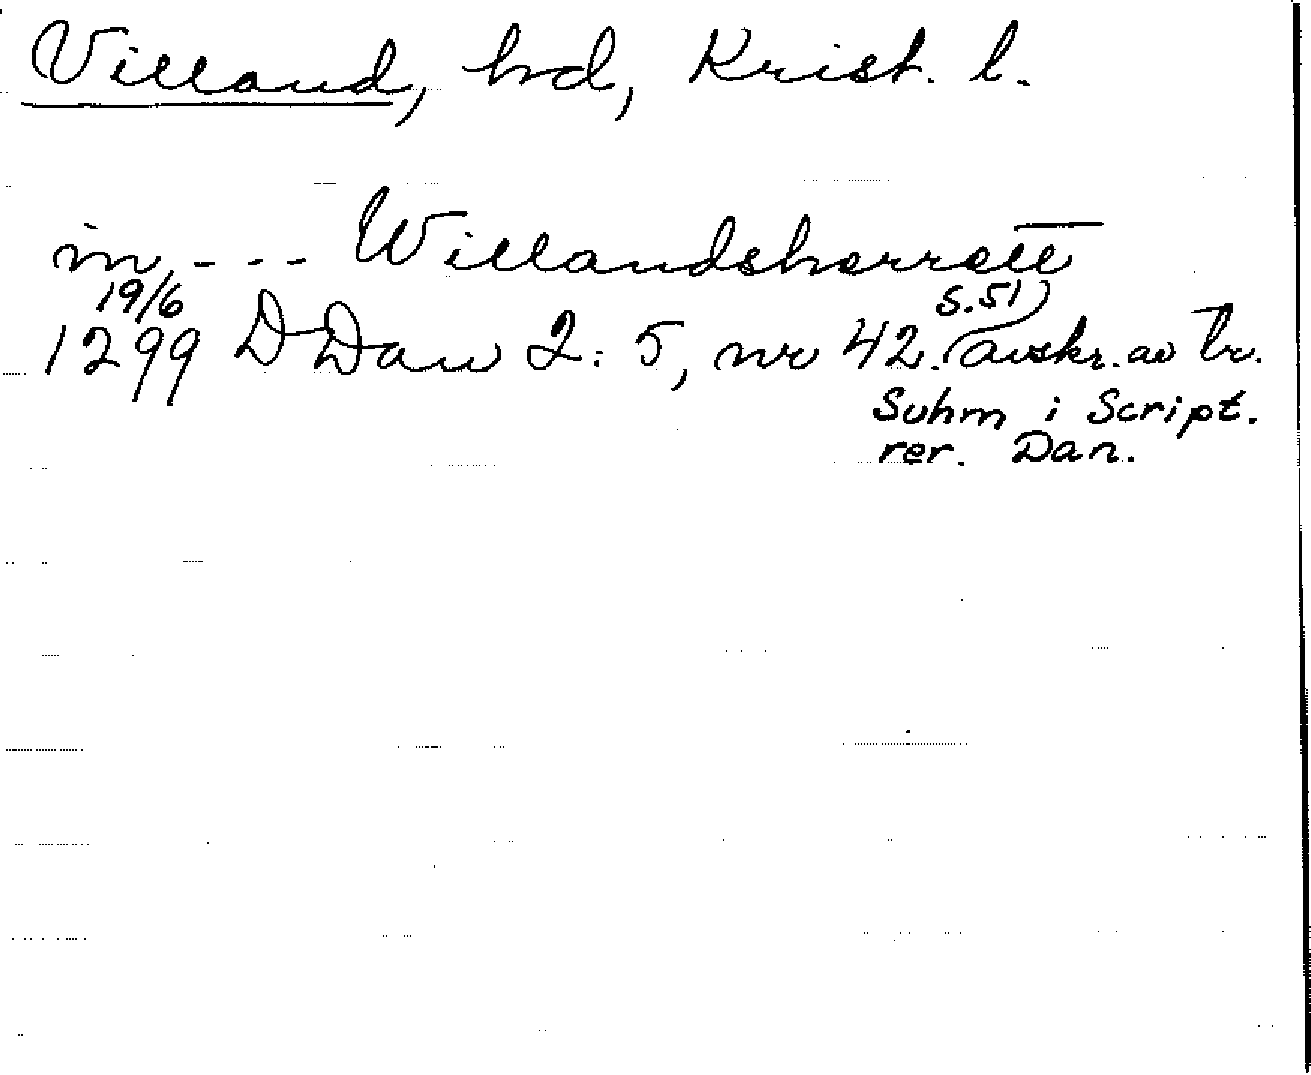 Villand, hd, Krist. l.
in --- Willandsherrett
19/6 s. 51)
1299 DDan 2: 5, nr 42. (avskr. av tr.
Suhm i Script.
rer. Dan.